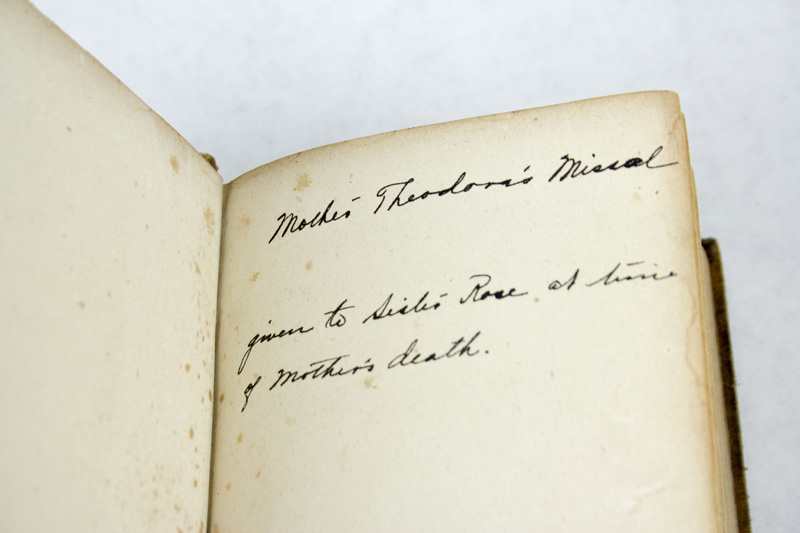 Mother Theodora's Missal
given to Sister Rose at time
of Mother's death.